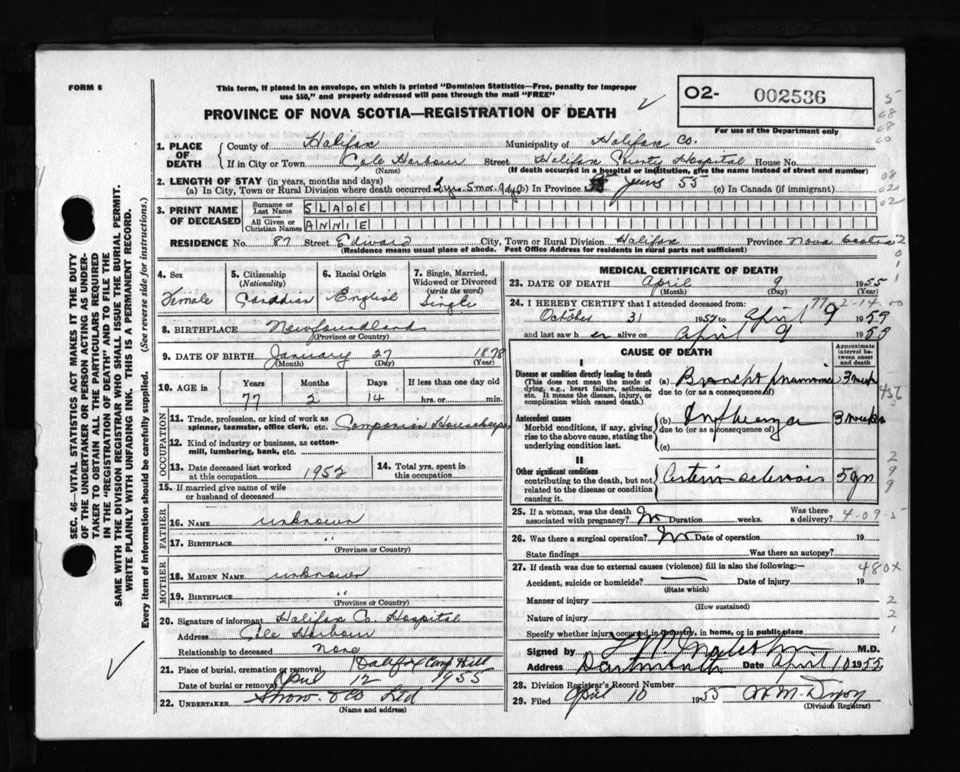 FORM 6
This form, if placed in an envelope, on which is printed "Dominion Statistics—Free, penalty for improper
use $50," and properly addressed will pass through the mail "FREE"
PROVINCE OF NOVA SCOTIA—REGISTRATION OF DEATH
O2- 002536
For use of the Department only
1. PLACE OF DEATH
County of Halifax Municipality of Halifax Co.
If in City or Town Cole Harbour Street Halifax County Hospital House No.
(Name) (If death occurred in a hospital or institution, give the name instead of street and number)
2. LENGTH OF STAY (in years, months and days)
(a) In City, Town or Rural Division where death occurred 2 yrs. 5 mos. 9 dys (b) In Province years 55 (c) In Canada (if immigrant)
3. PRINT NAME OF DECEASED
Surname or Last Name SLADE
All Given or Christian Names ANNIE
RESIDENCE No. 87 Street Edward City, Town or Rural Division Halifax Province Nova Scotia
(Residence means usual place of abode. Post Office Address for residents in rural parts not sufficient)
4. Sex
Female
5. Citizenship (Nationality)
Canadian
6. Racial Origin
English
7. Single, Married, Widowed or Divorced (write the word)
Single
8. BIRTHPLACE Newfoundland
(Province or Country)
9. DATE OF BIRTH January 27 1878
(Month) (Day) (Year)
10. AGE in Years Months Days If less than one day old
77 2 14 hrs. or min.
OCCUPATION
11. Trade, profession, or kind of work as spinner, teamster, office clerk, etc. Companion Housekeeper
12. Kind of industry or business, as cotton-mill, lumbering, bank, etc.
13. Date deceased last worked at this occupation 1952
14. Total yrs. spent in this occupation
15. If married give name of wife or husband of deceased
FATHER
16. NAME unknown
17. BIRTHPLACE "
(Province or Country)
MOTHER
18. MAIDEN NAME unknown
19. BIRTHPLACE "
(Province or Country)
20. Signature of informant Halifax Co. Hospital
Address Cole Harbour
Relationship to deceased None
21. Place of burial, cremation or removal Halifax Camp Hill
Date of burial or removal April 12 1955
22. UNDERTAKER Snow & Co Ltd
(Name and address)
MEDICAL CERTIFICATE OF DEATH
23. DATE OF DEATH April 9 1955
(Month) (Day) (Year)
24. I HEREBY CERTIFY that I attended deceased from:
77-2-14
October 31 1952 to April 9 1955
and last saw h er alive on April 9 1955
CAUSE OF DEATH
Approximate interval between onset and death
I
Disease or condition directly leading to death
(This does not mean the mode of dying, e.g., heart failure, asthenia, etc. It means the disease, injury, or complication which caused death.)
(a) Broncho pneumonia 3 weeks
due to (or as a consequence of)
Antecedent causes
Morbid conditions, if any, giving rise to the above cause, stating the underlying condition last.
(b) Influenza 3 weeks
due to (or as a consequence of)
(c)
II
Other significant conditions
contributing to the death, but not related to the disease or condition causing it.
Arterio sclerosis 5 yrs
25. If a woman, was the death associated with pregnancy? No Duration weeks. Was there a delivery?
4-09-5
26. Was there a surgical operation? No Date of operation 19
State findings Was there an autopsy?
27. If death was due to external causes (violence) fill in also the following:—
480x
Accident, suicide or homicide? Date of injury 19
(State which)
Manner of injury
(How sustained)
Nature of injury
Specify whether injury occurred in industry, in home, or in public place
Signed by M.D.
Address Dartmouth Date April 10 1955
28. Division Registrar's Record Number
29. Filed April 10 1955 W M Dixon
(Division Registrar)
SEC. 46—VITAL STATISTICS ACT MAKES IT THE DUTY
OF THE UNDERTAKER OR PERSON ACTING AS UNDER-
TAKER TO OBTAIN ALL THE PARTICULARS REQUIRED
IN THE "REGISTRATION OF DEATH" AND TO FILE THE
SAME WITH THE DIVISION REGISTRAR WHO SHALL ISSUE THE BURIAL PERMIT.
WRITE PLAINLY WITH UNFADING INK. THIS IS A PERMANENT RECORD.
Every item of information should be carefully supplied. (See reverse side for instructions.)